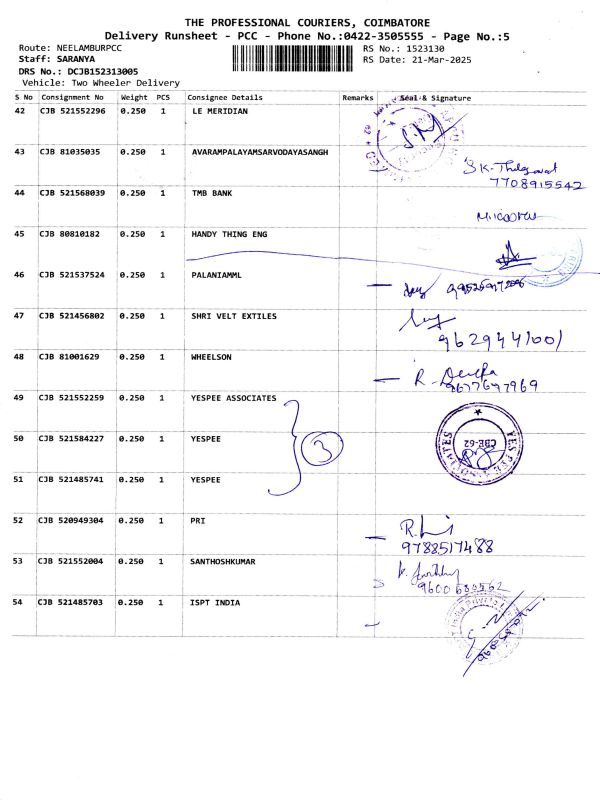 THE PROFESSIONAL COURIERS, COIMBATORE
Delivery Runsheet - PCC - Phone No.:0422-3505555 - Page No.:5
Route: NEELAMBURPCC RS No.: 1523130
Staff: SARANYA RS Date: 21-Mar-2025
DRS No.: DCJB152313005
Vehicle: Two Wheeler Delivery
S No Consignment No Weight PCS Consignee Details Remarks Seal & Signature
42 CJB 521552296 0.250 1 LE MERIDIAN
43 CJB 81035035 0.250 1 AVARAMPALAYAMSARVODAYASANGH
7708915542
44 CJB 521568039 0.250 1 TMB BANK
45 CJB 80810182 0.250 1 HANDY THING ENG
46 CJB 521537524 0.250 1 PALANIAMML
47 CJB 521456802 0.250 1 SHRI VELT EXTILES
9629441001
48 CJB 81001629 0.250 1 WHEELSON
9677697969
49 CJB 521552259 0.250 1 YESPEE ASSOCIATES
50 CJB 521584227 0.250 1 YESPEE 3 CBE-62
51 CJB 521485741 0.250 1 YESPEE
52 CJB 520949304 0.250 1 PRI
9788517488
53 CJB 521552004 0.250 1 SANTHOSHKUMAR
9600680562
54 CJB 521485703 0.250 1 ISPT INDIA